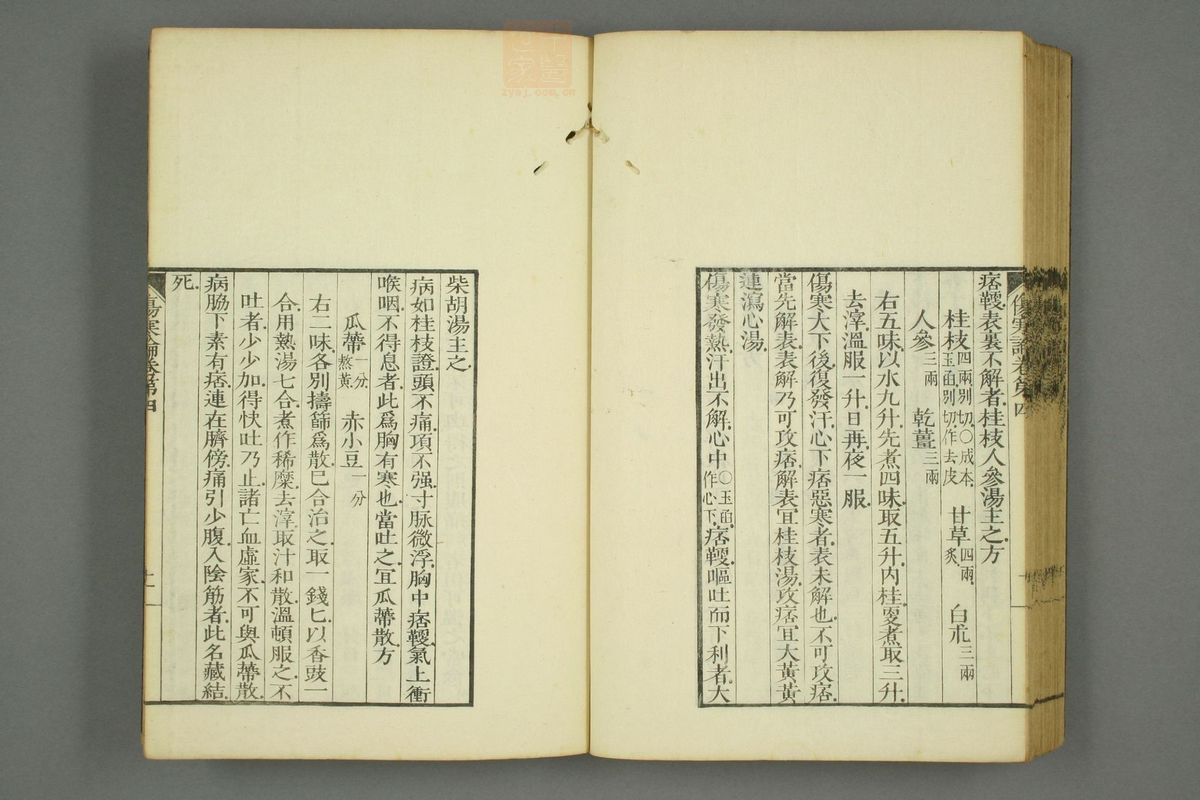 傷寒論卷第四
痞鞕表裏不解者桂枝人參湯主之方
桂枝四兩別切○成本玉函別切作去皮 甘草四兩炙 白朮三兩
人參三兩 乾薑三兩
右五味以水九升先煮四味取五升內桂更煮取三升
去滓溫服一升日再夜一服
傷寒大下後復發汗心下痞惡寒者表未解也不可攻痞
當先解表表解乃可攻痞解表宜桂枝湯攻痞宜大黃黃
連瀉心湯
傷寒發熱汗出不解心中○玉函作心下痞鞕嘔吐而下利者大
柴胡湯主之
病如桂枝證頭不痛項不强寸脉微浮胸中痞鞕氣上衝
喉咽不得息者此爲胸有寒也當吐之宜瓜蔕散方
瓜蔕一分熬黃 赤小豆一分
右二味各別擣篩爲散已合治之取一錢匕以香豉一
合用熱湯七合煮作稀糜去滓取汁和散溫頓服之不
吐者少少加得快吐乃止諸亡血虛家不可與瓜蔕散
病脇下素有痞連在臍傍痛引少腹入陰筋者此名藏結
死
傷寒論卷第四